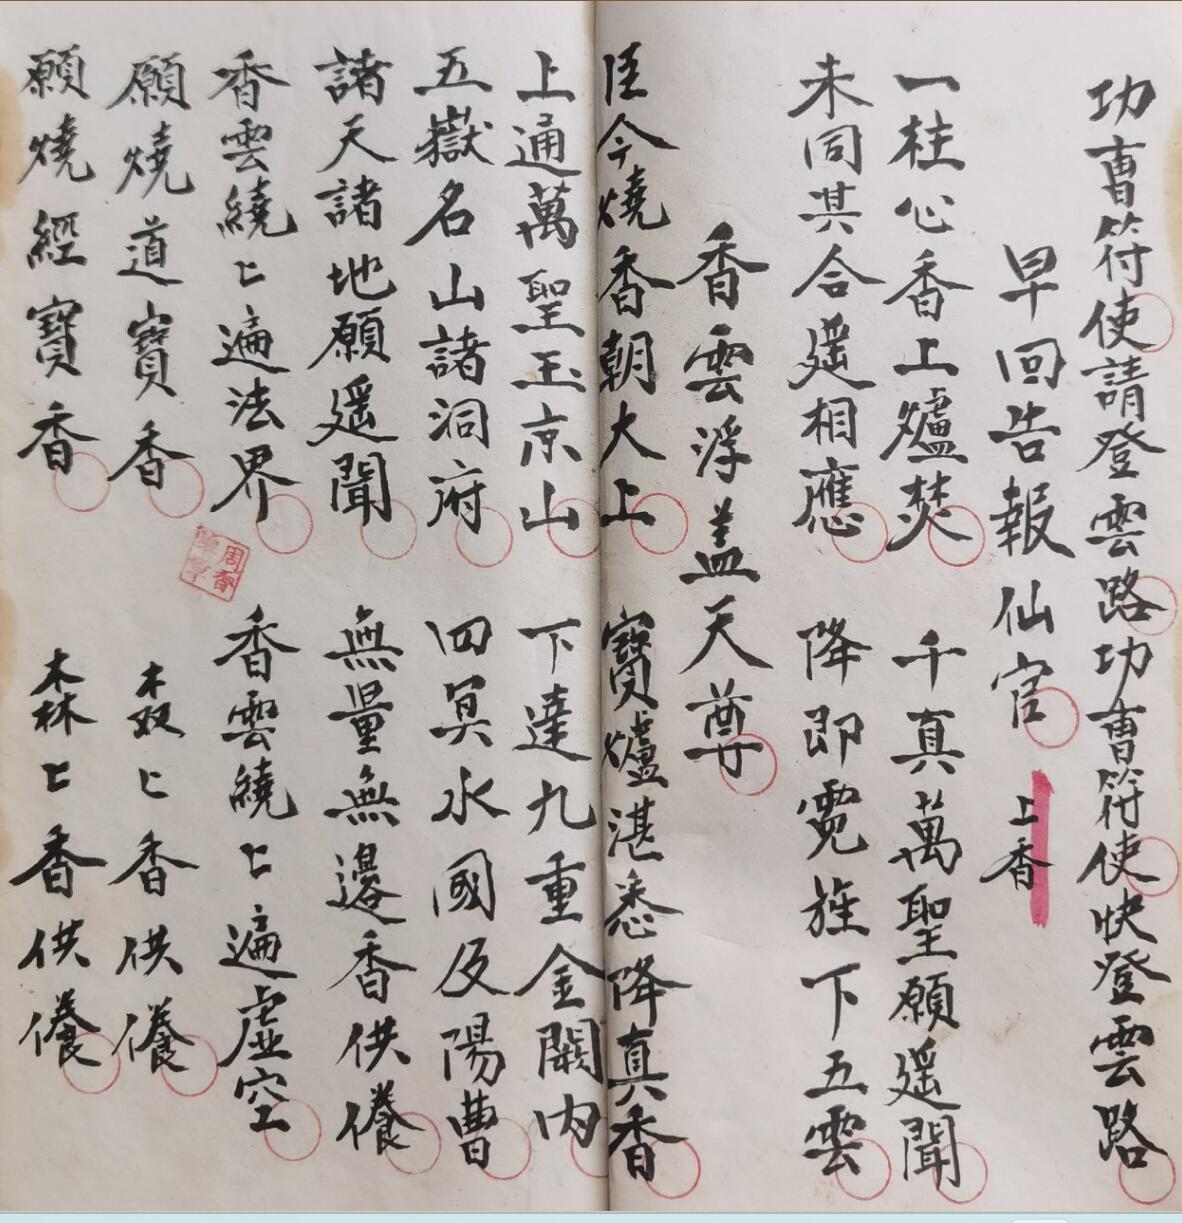 功曹符使請登雲路功曹符使快登雲路
早回告報仙官 上香
一柱心香上爐焚 千真萬聖願遥聞
未同其合遥相應 降即霓旌下五雲
香雲浮盖天尊
臣今燒香朝大上 寶爐湛悉降真香
上通萬聖玉京山 下達九重金闕内
五嶽名山諸洞府 四冥水國及陽曹
諸天諸地願遥聞 無量無邊香供養
香雲繞㇒遍法界 香雲繞㇒遍虚空
願燒道寶香 森㇒香供養
願燒經寶香 森㇒香供養